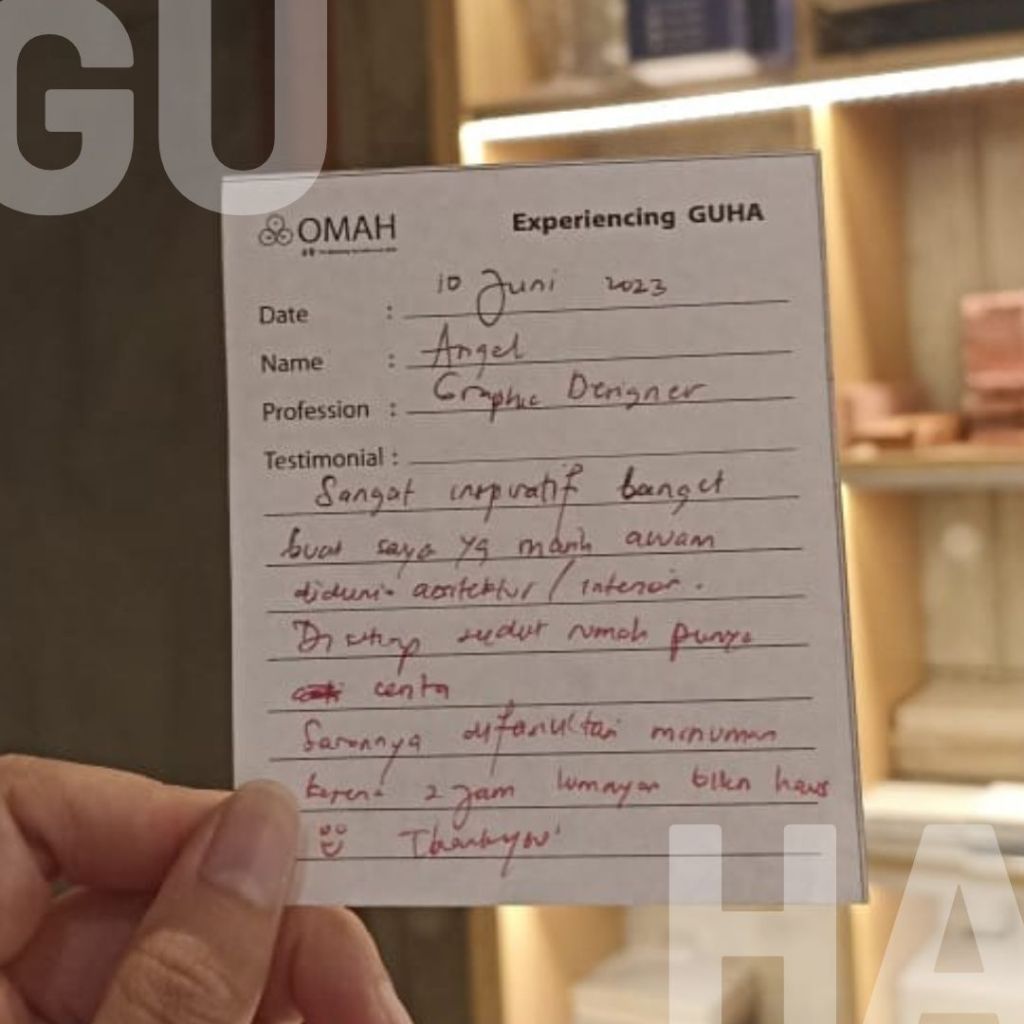 GU
OMAH
Experiencing GUHA
Date : 10 Juni 2023
Name : Angel
Profession : Graphic Designer
Testimonial :
Sangat inspiratif banget
buat saya yg masih awam
didunia arsitektur / interior.
Di setiap sudut rumah punya
cerita
Sarannya difasilitasi minuman
karena 2 jam lumayan bikin haus
Thankyou
HA